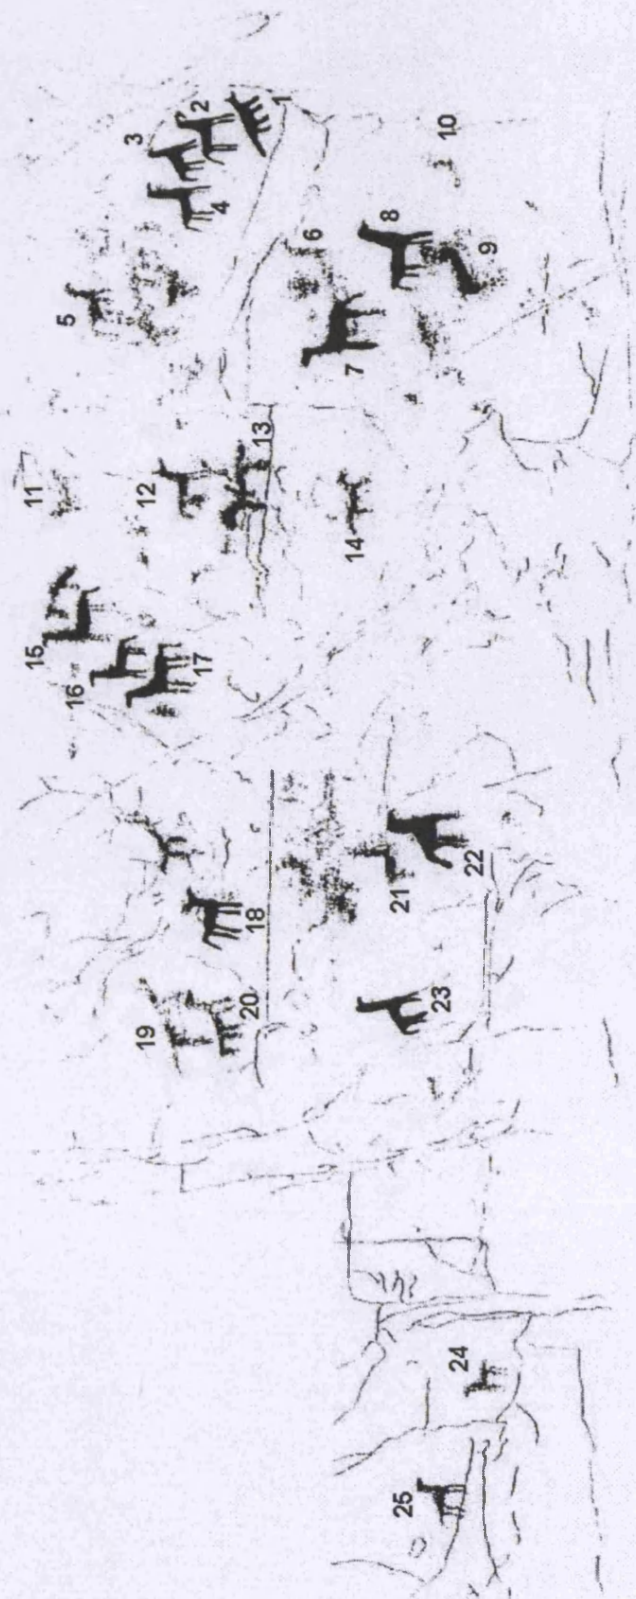 1
2
3
4
5
6
7
8
9
10
11
12
13
14
15
16
17
18
19
20
21
22
23
24
25